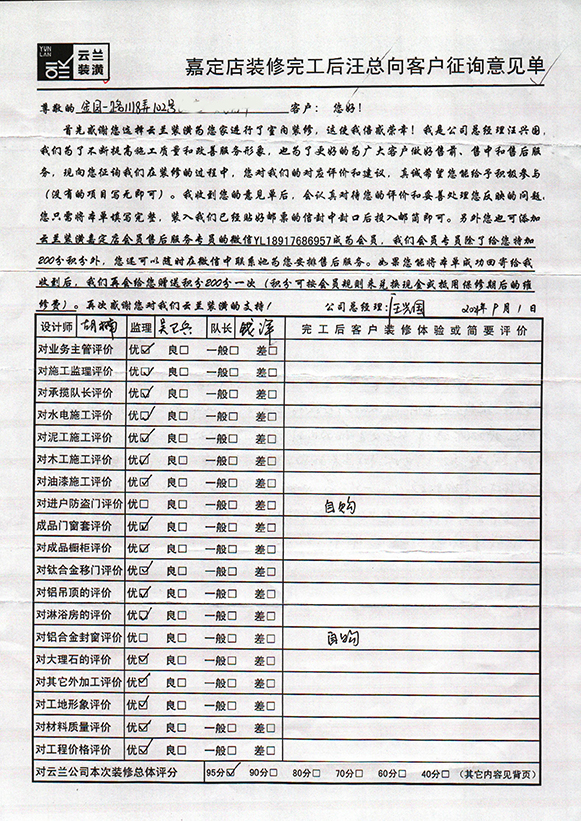 YUN LAN 云兰装潢
嘉定店装修完工后汪总向客户征询意见单
尊敬的 1118弄102号 客户： 您好！
首先感谢您选择云兰装潢为您家进行了室内装修，这使我倍感荣幸！我是公司总经理汪兴国，
我们为了不断提高施工质量和改善服务形象，也为了更好的为广大客户做好售前、售中和售后服
务，现向您征询我们在装修的过程中，您对我们的对应评价和建议，真诚希望您能给予积极参与
（没有的项目写无即可）。我收到您的意见单后，会认真对待您的评价和妥善处理您反映的问题，
您只需将本单填写完整，装入我们已经贴好邮票的信封中封口后投入邮筒即可。另外您也可添加
云兰装潢嘉定店会员售后服务专员的微信YL18917686957成为会员，我们会员专员除了给您特加
200分积分外，您还可以随时在微信中联系她为您安排售后服务。如果您能将本单成功回寄给我
收到后，我们再会给您赠送积分200分一次（积分可按会员规则来兑换现金或抵用保修期后的维
修费）。再次感谢您对我们云兰装潢的支持！ 公司总经理：汪兴国 9月1日
设计师 胡楠 监理 吴卫兵 队长 钱洋 完工后客户装修体验或简要评价
对业务主管评价 优☑ 良□ 一般□ 差□
对施工监理评价 优☑ 良□ 一般□ 差□
对承揽队长评价 优☑ 良□ 一般□ 差□
对水电施工评价 优☑ 良□ 一般□ 差□
对泥工施工评价 优☑ 良□ 一般□ 差□
对木工施工评价 优☑ 良□ 一般□ 差□
对油漆施工评价 优☑ 良□ 一般□ 差□
对进户防盗门评价 优□ 良□ 一般□ 差□ 自购
成品门窗套评价 优☑ 良□ 一般□ 差□
对成品橱柜评价 优☑ 良□ 一般□ 差□
对钛合金移门评价 优☑ 良□ 一般□ 差□
对铝吊顶的评价 优☑ 良□ 一般□ 差□
对淋浴房的评价 优☑ 良□ 一般□ 差□
对铝合金封窗评价 优□ 良□ 一般□ 差□ 自购
对大理石的评价 优☑ 良□ 一般□ 差□
对其它外加工评价 优☑ 良□ 一般□ 差□
对工地形象评价 优☑ 良□ 一般□ 差□
对材料质量评价 优☑ 良□ 一般□ 差□
对工程价格评价 优☑ 良□ 一般□ 差□
对云兰公司本次装修总体评分 95分☑ 90分□ 80分□ 70分□ 60分□ 40分□ （其它内容见背页）